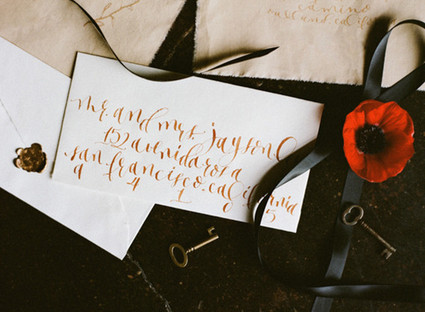 camino
oakland cal
mr. and mrs. jayson l
152 avenida rosa
san francisco. california
9 4 1 0 5